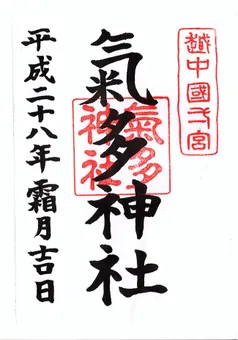 越中國一宮
氣多神社
氣多神社
平成二十八年霜月吉日